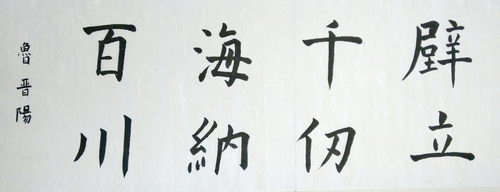 壁立
千仞
海納
百川
魯晋陽